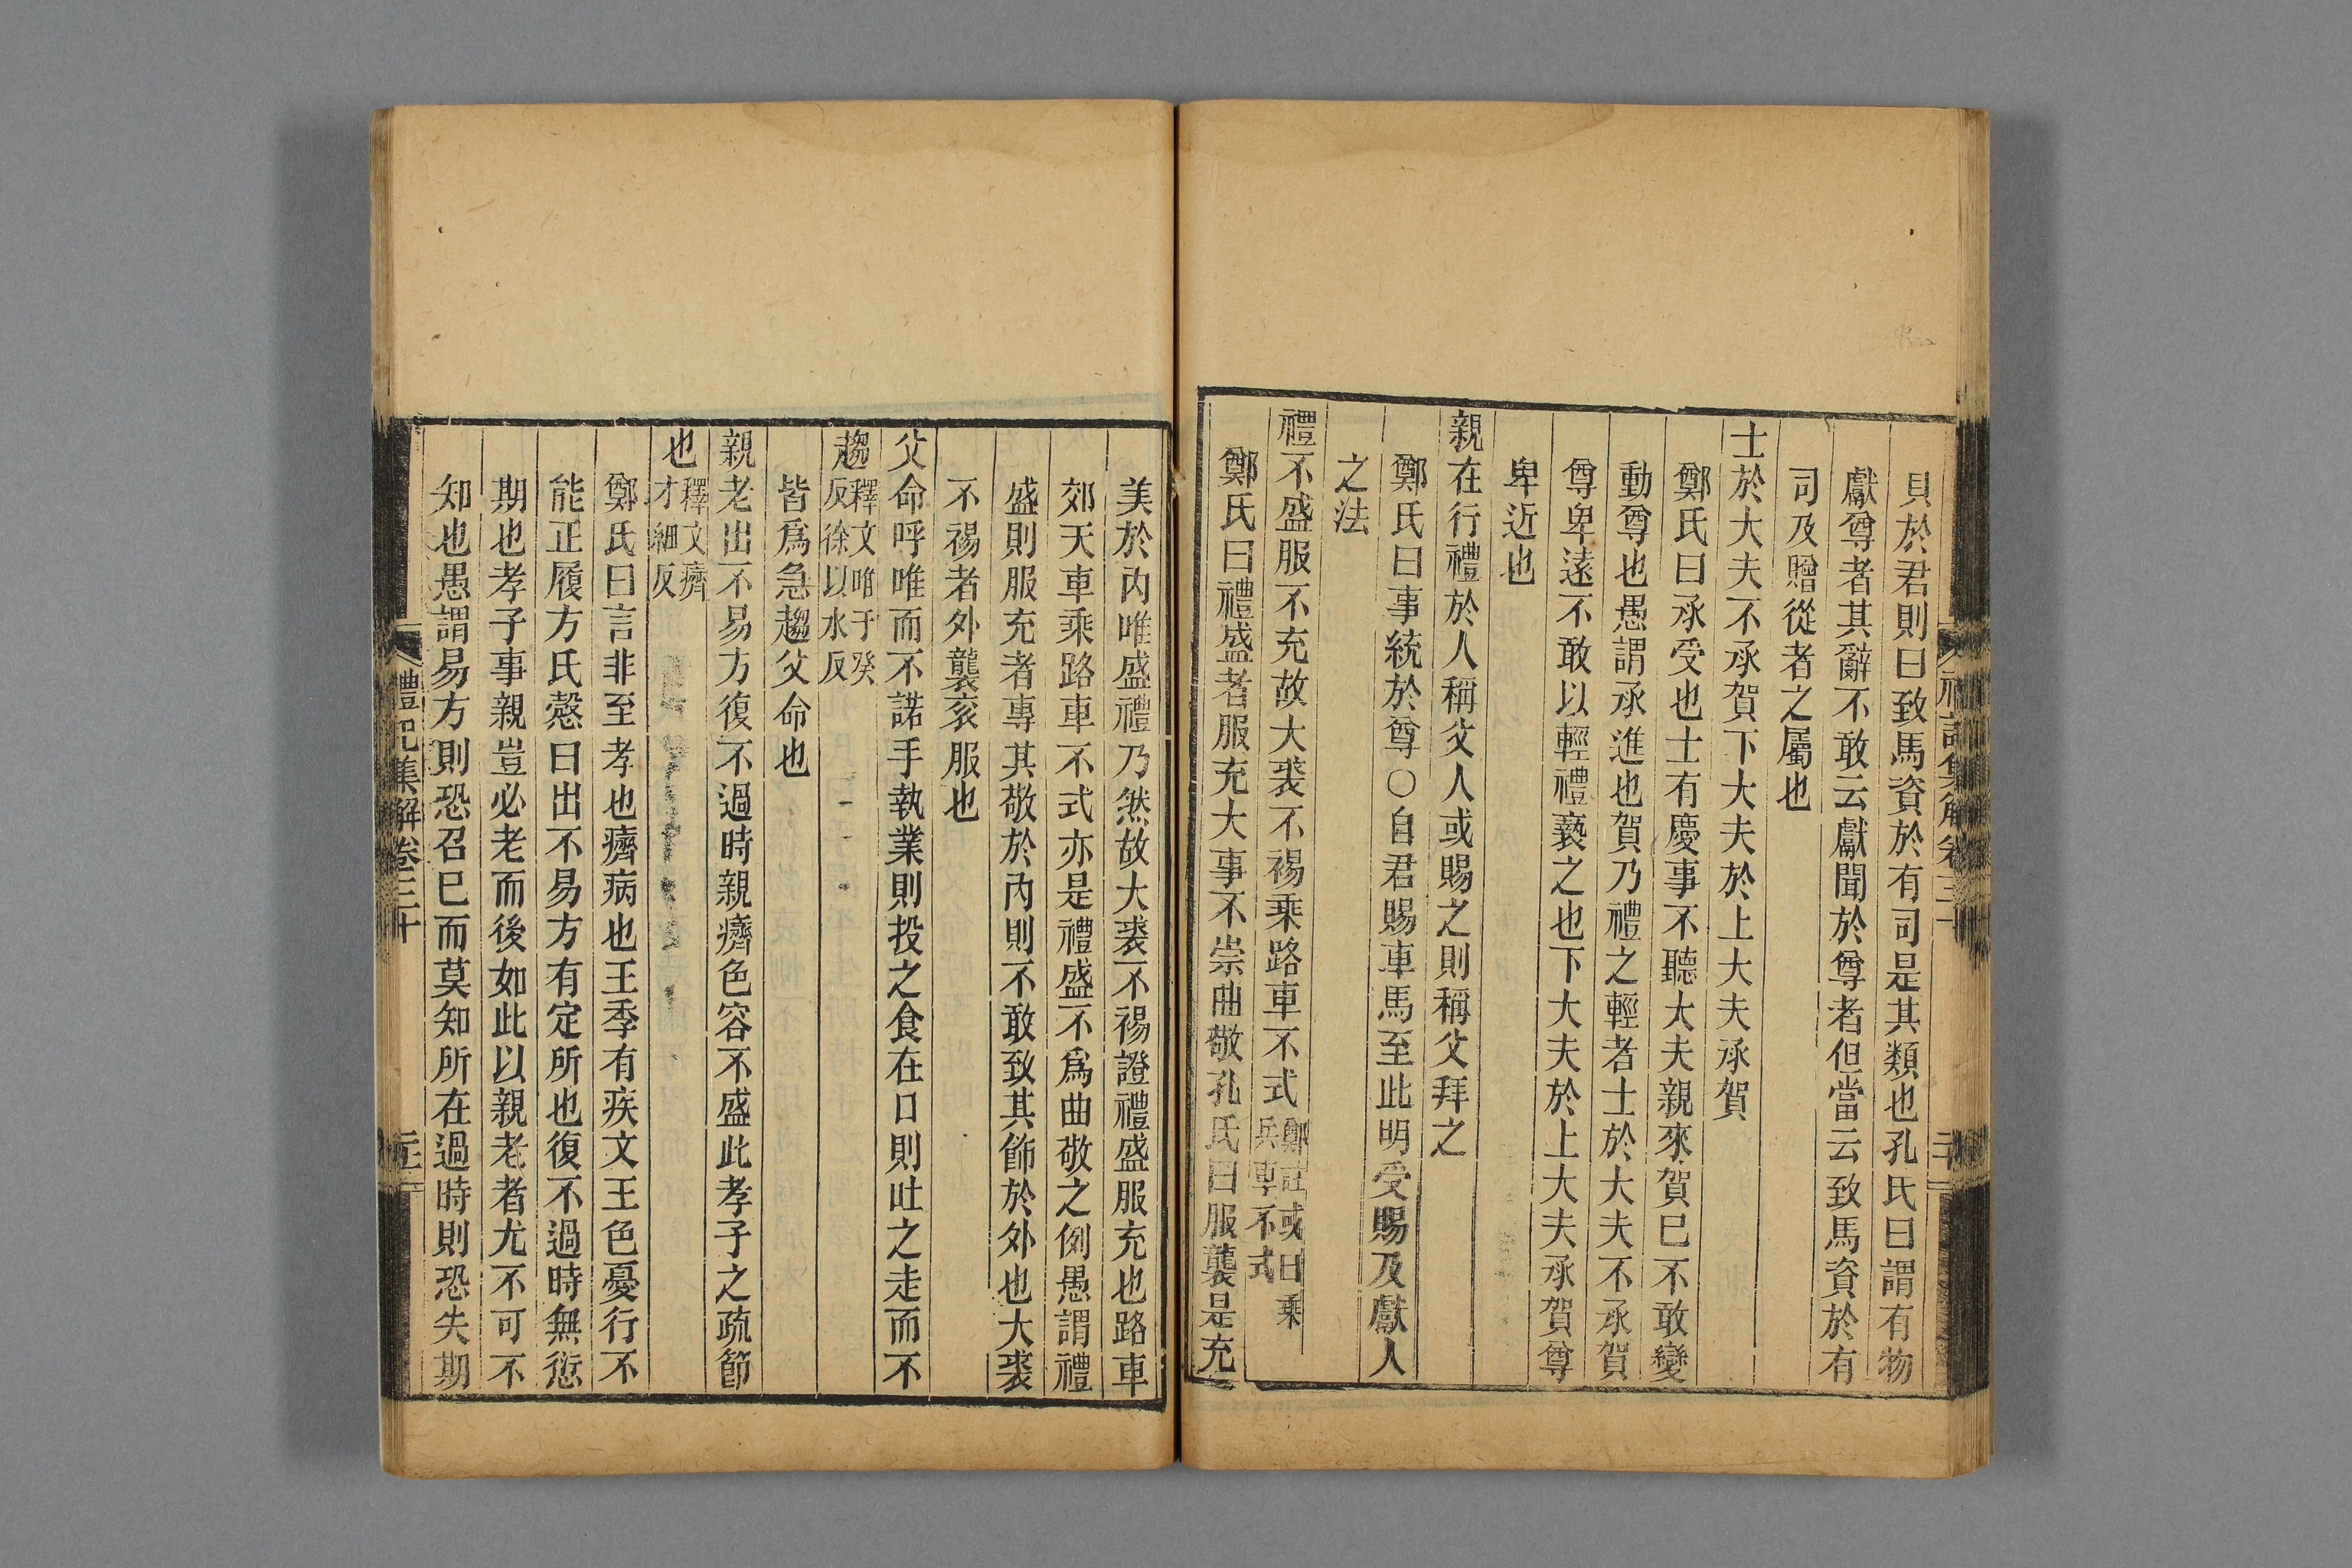 貝於君則曰致馬資於有司是其類也孔氏曰謂有物
獻尊者其辭不敢云獻聞於尊者但當云致馬資於有
司及贈從者之屬也
士於大夫不承賀下大夫於上大夫承賀
鄭氏曰承受也士有慶事不聽大夫親來賀巳不敢變
動尊也愚謂承進也賀乃禮之輕者士於大夫不承賀
尊卑遠不敢以輕禮褻之也下大夫於上大夫承賀尊
卑近也
親在行禮於人稱父人或賜之則稱父拜之
鄭氏曰事統於尊○自君賜車馬至此明受賜及獻人
之法
禮不盛服不充故大裘不裼乘路車不式鄭註或曰乘
兵車不式
鄭氏曰禮盛者服充大事不崇曲敬孔氏曰服襲是充
美於內唯盛禮乃然故大裘不裼證禮盛服充也路車
郊天車乘路車不式亦是禮盛不爲曲敬之例愚謂禮
盛則服充者專其敬於內則不敢致其飾於外也大裘
不裼者外襲衮服也
父命呼唯而不諾手執業則投之食在口則吐之走而不
趨釋文唯于癸
反徐以水反
皆爲急趨父命也
親老出不易方復不過時親癠色容不盛此孝子之疏節
也釋文癠
才細反
鄭氏曰言非至孝也癠病也王季有疾文王色憂行不
能正履方氏愨曰出不易方有定所也復不過時無愆
期也孝子事親豈必老而後如此以親老者尤不可不
知也愚謂易方則恐召巳而莫知所在過時則恐失期
禮記集解卷三十